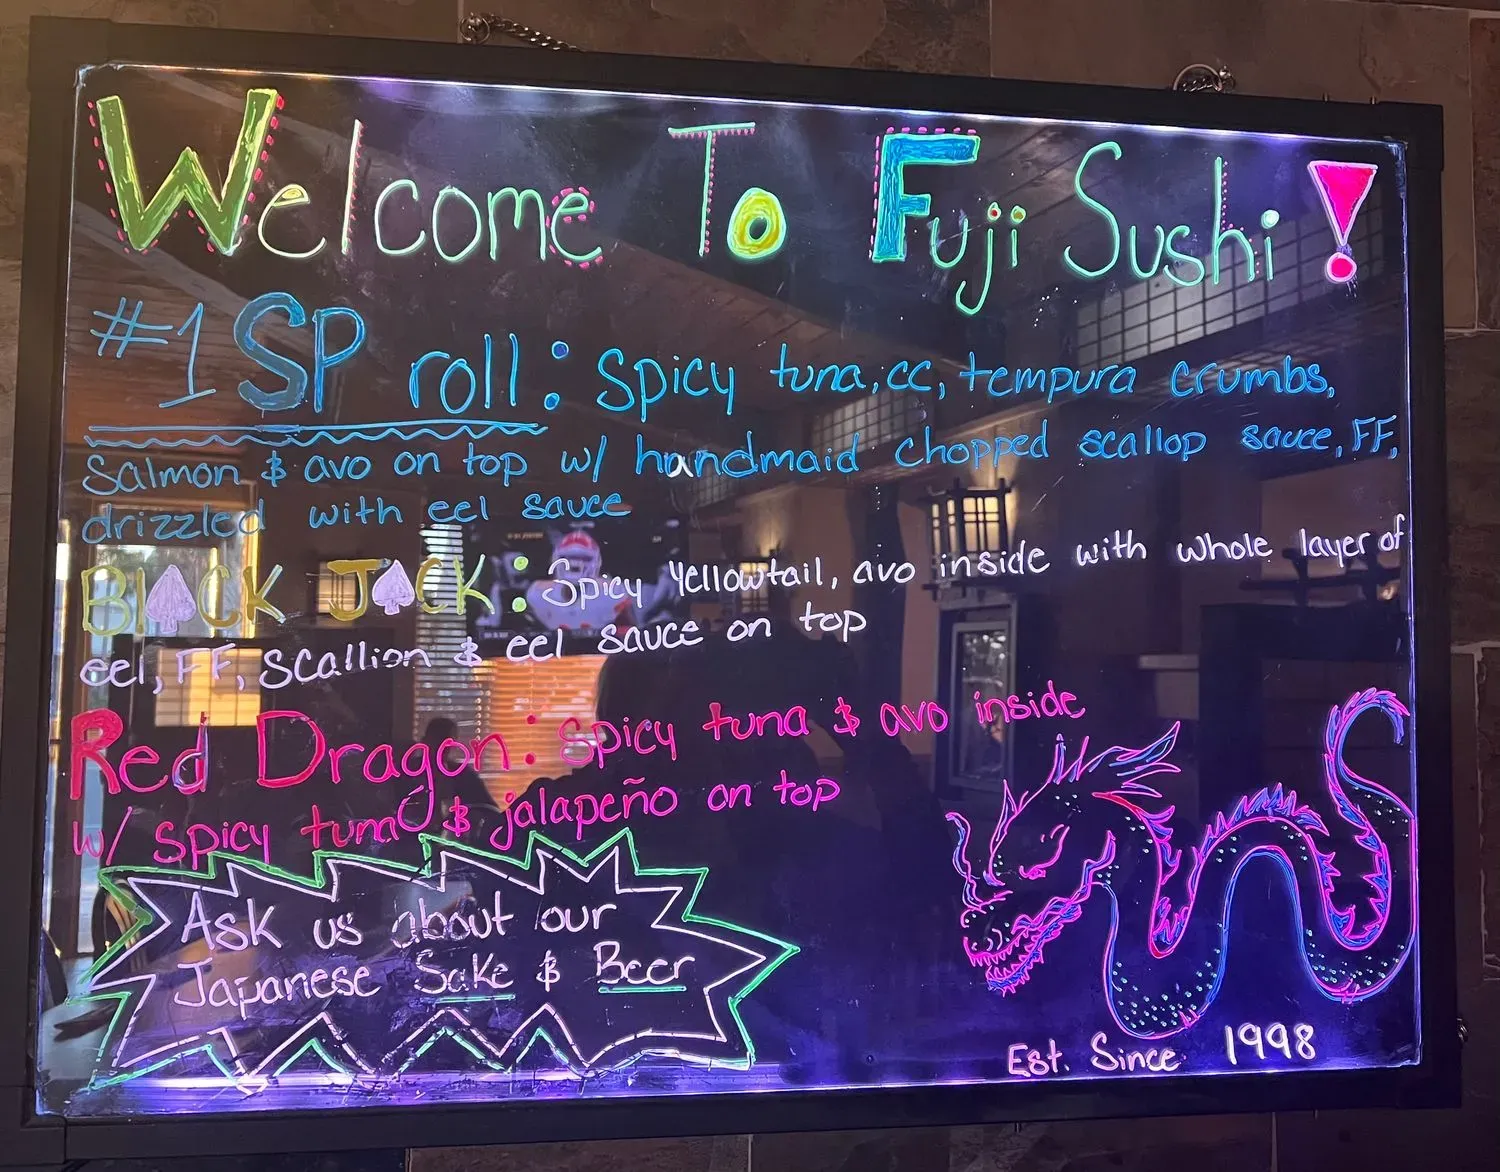 Welcome To Fuji Sushi!
#1 SP roll: Spicy tuna, cc, tempura crumbs,
Salmon & avo on top w/ handmaid chopped scallop sauce, FF,
drizzled with eel sauce
BLACK JACK: Spicy Yellowtail, avo inside with whole layer of
eel, FF, Scallion & eel sauce on top
Red Dragon: Spicy tuna & avo inside
w/ spicy tuna & jalapeño on top
Ask us about our
Japanese Sake & Beer
Est. Since 1998